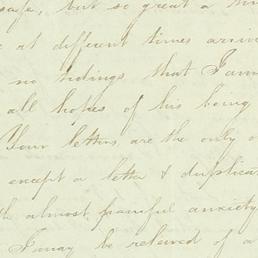 safe, but so great a
at different times arriv
no tidings that I am
all hopes of his being
Your letters are the only
except a letter & duplica
the almost painful anxiety
I may be relieved of a